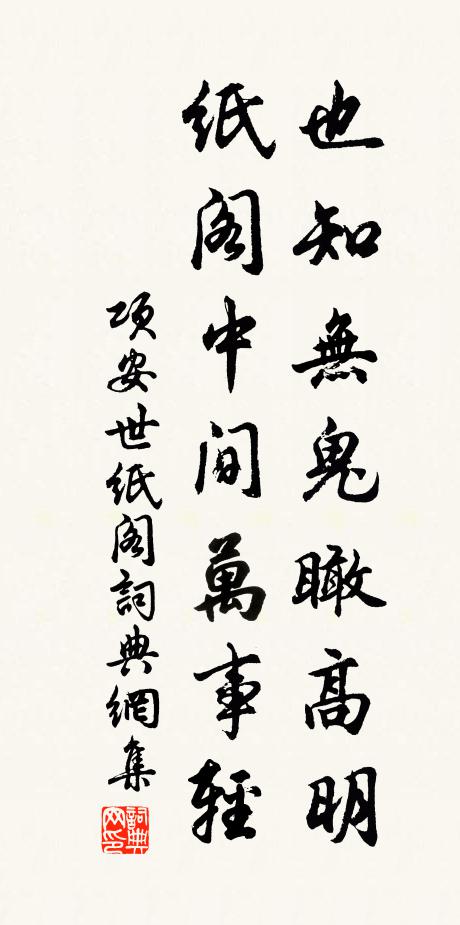 也知無鬼瞰高明
紙閣中間萬事輕
項安世紙閣詞典網集
詞典網印